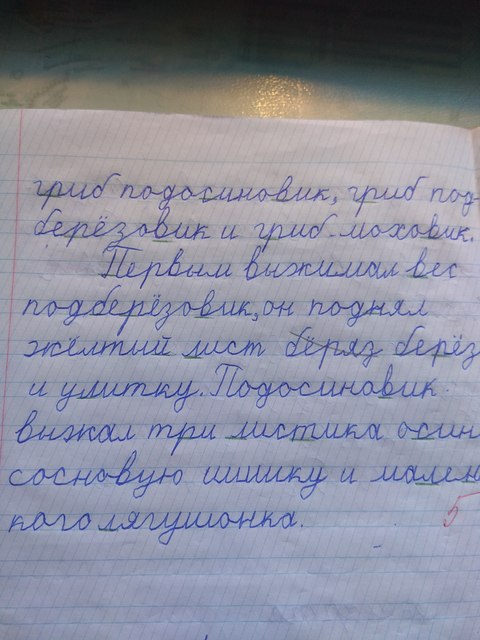 гриб подосиновик, гриб под-
берёзовик и гриб-моховик.
Первым выжимал вес
подберёзовик, он поднял
жёлтый лист берёз
и улитку. Подосиновик
выжал три листика осин
сосновую шишку и мален
кого лягушонка.
5